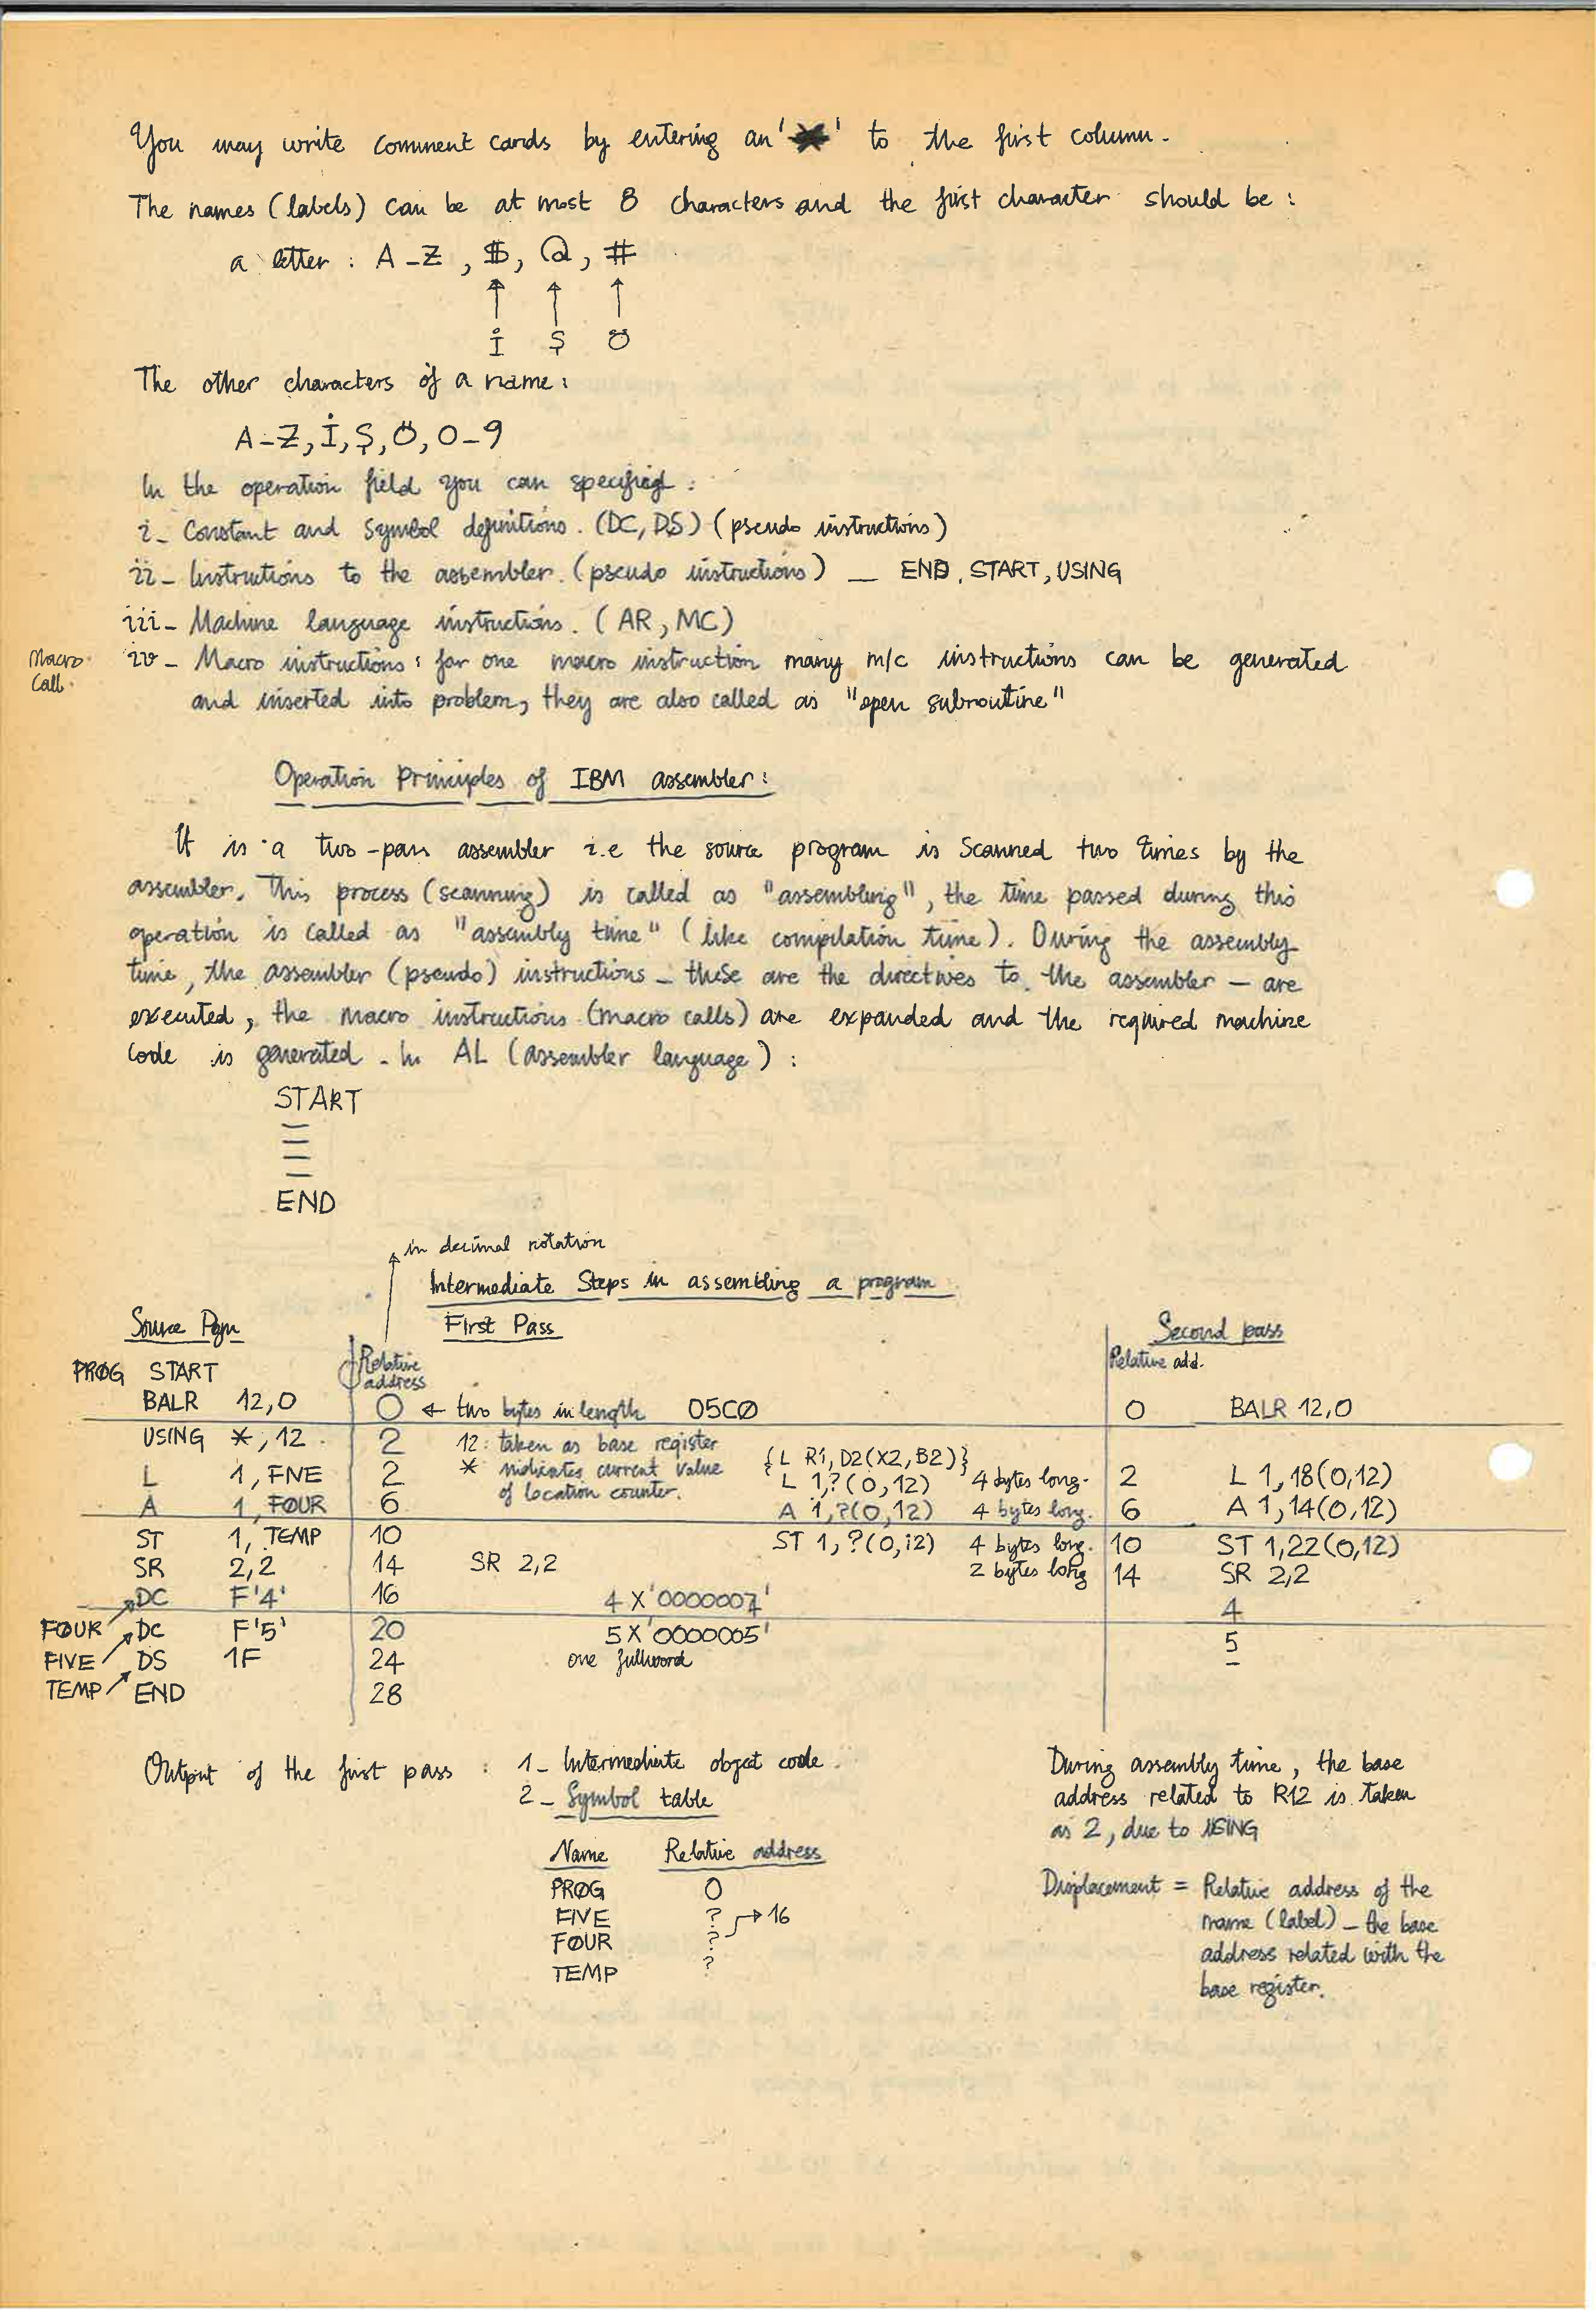 You may write comment cards by entering an '*' to the first column.
The names (labels) can be at most 8 characters and the first character should be :
a letter : A-Z , $, @, #
İ Ş Ö
The other characters of a name :
A-Z, İ, Ş, Ö, 0-9
In the operation field you can specified :
i- Constant and symbol definitions. (DC, DS) (pseudo instructions)
ii- Instructions to the assembler. (pseudo instructions) — END, START, USING
iii- Machine language instructions. (AR, MC)
Macro Call.
iv- Macro instructions : for one macro instruction many m/c instructions can be generated
and inserted into problem, they are also called as "open subroutine"
Operation Principles of IBM assembler :
It is a two-pass assembler i.e the source program is scanned two times by the
assembler. This process (scanning) is called as "assembling", the time passed during this
operation is called as "assembly time" (like compilation time). During the assembly
time, the assembler (pseudo) instructions - these are the directives to the assembler - are
executed, the macro instructions (macro calls) are expanded and the required machine
code is generated - In AL (assembler language) :
START
END
in decimal notation
Intermediate Steps in assembling a program
Source Pgm First Pass Second pass
PROG START Relative address Relative add.
BALR 12,0 0 ← two bytes in length 05C0 0 BALR 12,0
USING *,12 2 12: taken as base register {L R1, D2(X2,B2)}
* indicates current value of location counter.
L 1, FNE 2 L 1,?(0,12) 4 bytes long. 2 L 1,18(0,12)
A 1, FOUR 6 A 1,?(0,12) 4 bytes long. 6 A 1,14(0,12)
ST 1, TEMP 10 ST 1,?(0,12) 4 bytes long. 10 ST 1,22(0,12)
SR 2,2 14 SR 2,2 2 bytes long 14 SR 2,2
DC F'4' 16 4 X'0000007' 4
FOUR DC F'5' 20 5 X'0000005' 5
FIVE DS 1F 24 one fullword -
TEMP END 28
Output of the first pass : 1- Intermediate object code.
2- Symbol table
Name Relative address
PROG 0
FIVE ? → 16
FOUR ?
TEMP ?
During assembly time, the base
address related to R12 is taken
as 2, due to USING
Displacement = Relative address of the
name (label) - the base
address related with the
base register.